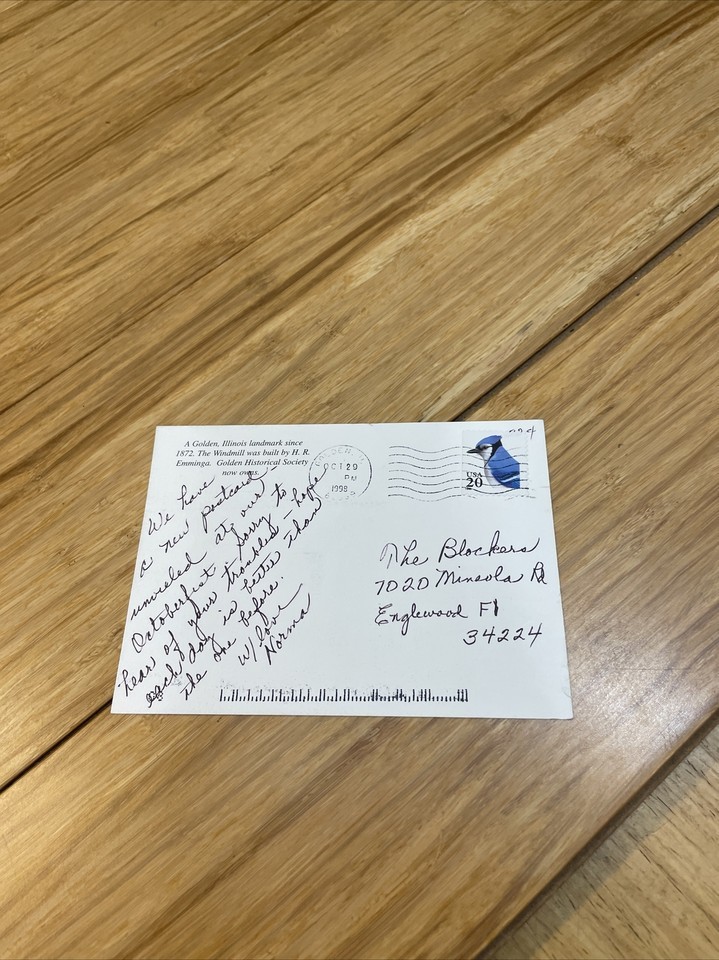 A Golden, Illinois landmark since
1872. The Windmill was built by H. R.
Emminga. Golden Historical Society
now owns.
We have
a new postcard -
unveiled at our
Octoberfest. Sorry to
hear of your troubles - hope
each day is better than
the one before.
W/ love
Norma
GOLDEN, IL
OCT 29
PM
1998
USA
20
The Blockers
7020 Mineola Rd
Englewood Fl
34224